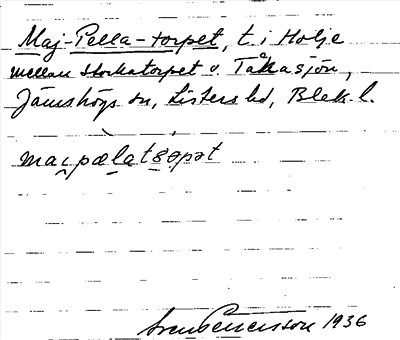 Maj-Pella-torpet, t. i Holje
mellan Stockatorpet o. Tåkasjön,
Jämshögs sn, Listers hd, Blek l.
Sven Benson 1936